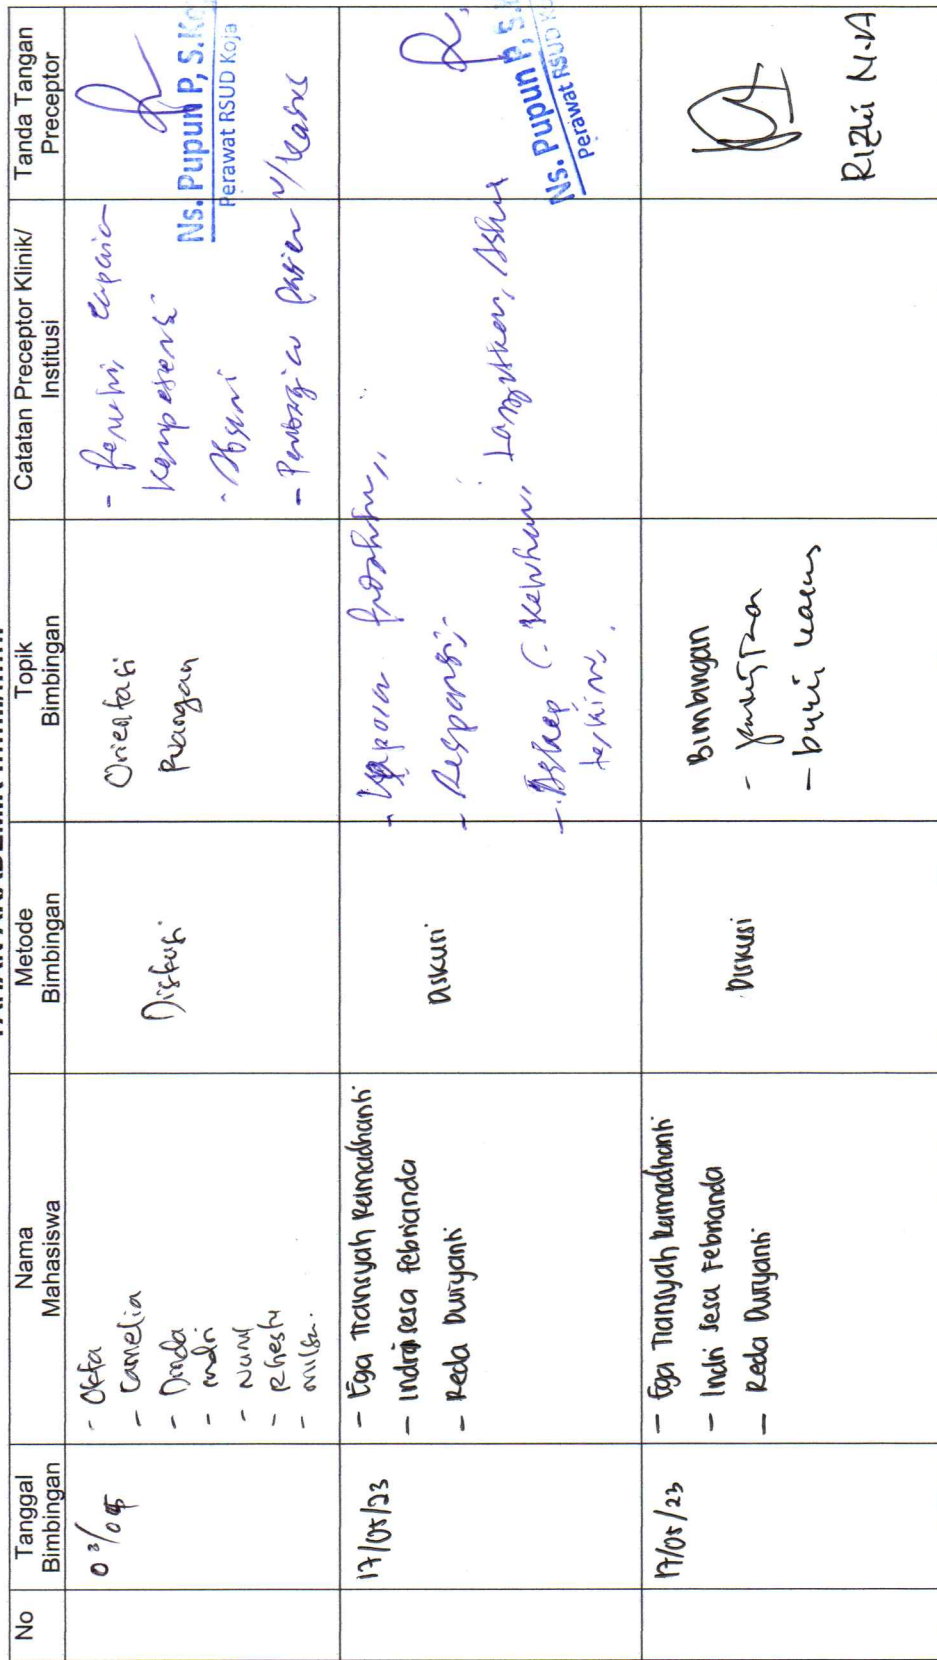 No
Tanggal
Bimbingan
Nama
Mahasiswa
Metode
Bimbingan
Topik
Bimbingan
Catatan Preceptor Klinik/
Institusi
Tanda Tangan
Preceptor
03/05
- Okfa
- Camelia
- Dinda
- indri
- Nurul
- Rhesty
Diskusi
Orientasi
Ruangan
kompetensi
- Absensi
- Pembagian pasien u/kasus
Ns. Pupun P, S.Ke
Perawat RSUD Koja
17/05/23
- Ega Tiansyah Ramadhanti
- Indri sesa Febrianda
- Reda Duriyanti
Diskusi
- Responsi
- Askep (- Keluhan,
terkini.
Lanjutkan, Askep
Ns. Pupun P, S.K
Perawat RSUD Ko
17/05/23
- Ega Tiansyah Ramadhanti
- Indri Sesa Febrianda
- Reda Duriyanti
Diskusi
Bimbingan
Rizki N.A